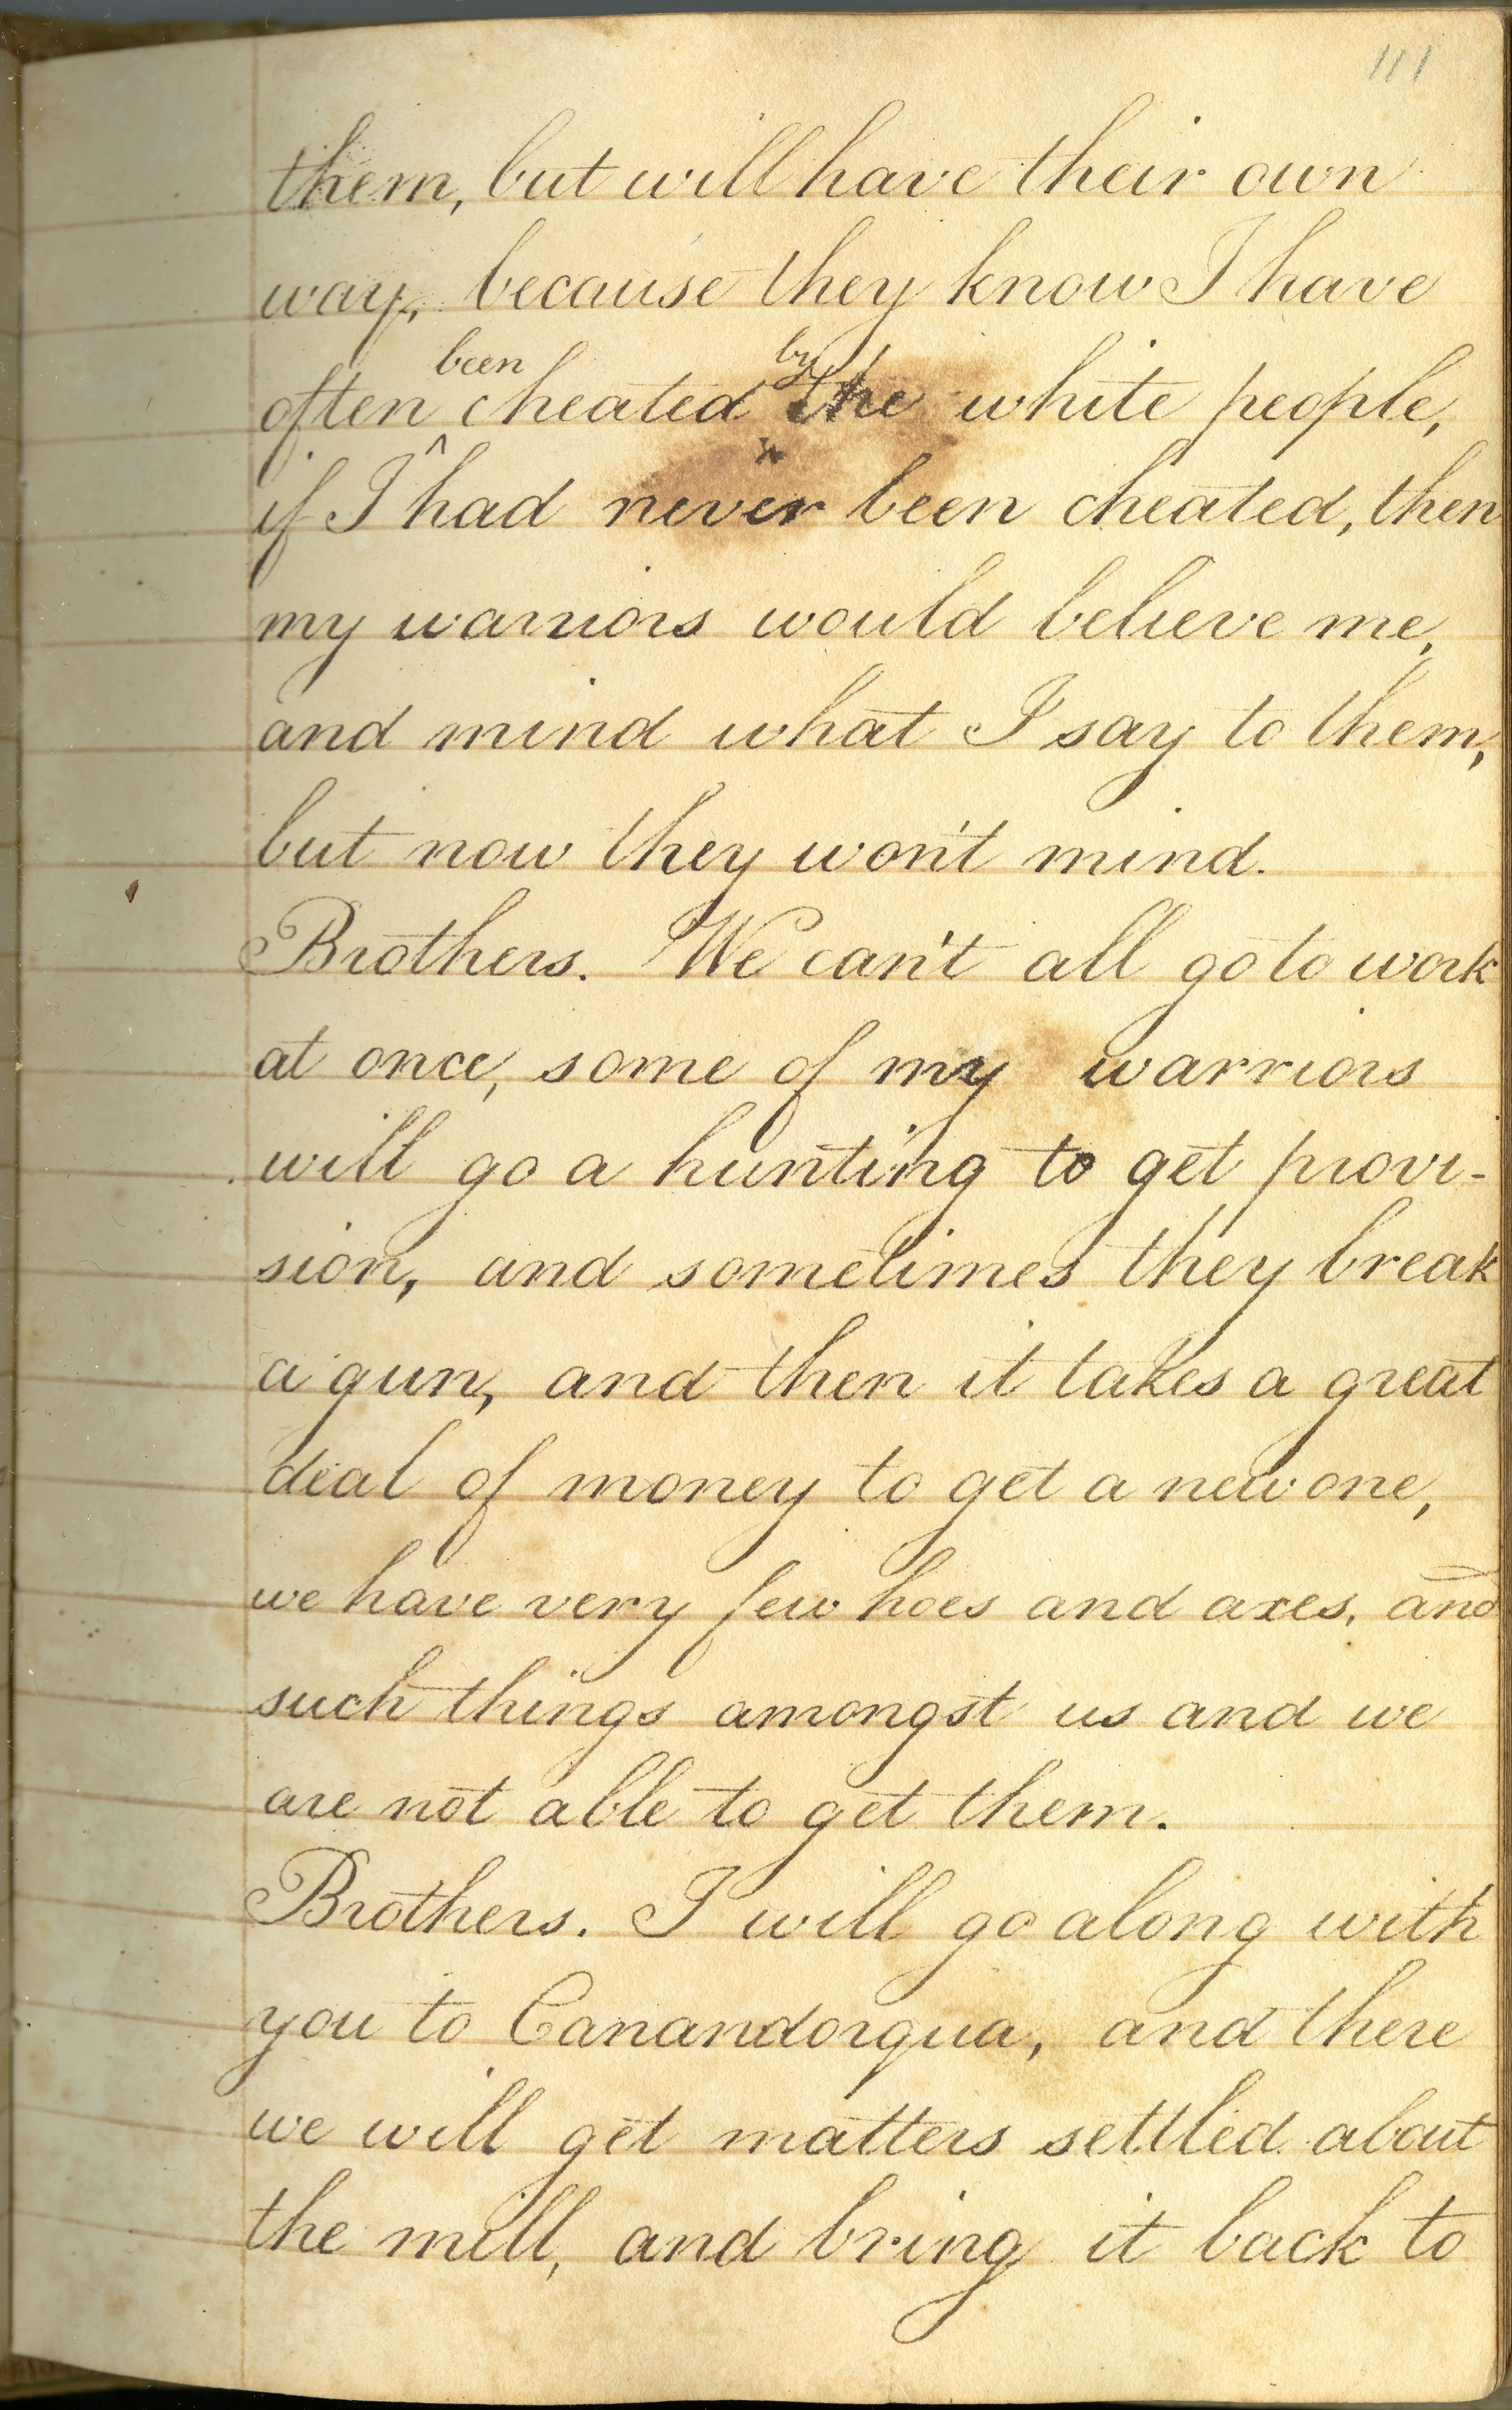 111
them, but will have their own
way, because they know I have
often been cheated by the white people,
if I had never been cheated, then
my warriors would believe me,
and mind what I say to them,
but now they won't mind.
Brothers. We can't all go to work
at once, some of my warriors
will go a hunting to get provi-
sion, and sometimes they break
a gun, and then it takes a great
deal of money to get a new one,
we have very few hoes and axes, and
such things amongst us and we
are not able to get them.
Brothers. I will go along with
you to Canandorqua, and there
we will get matters settled about
the mill, and bring it back to